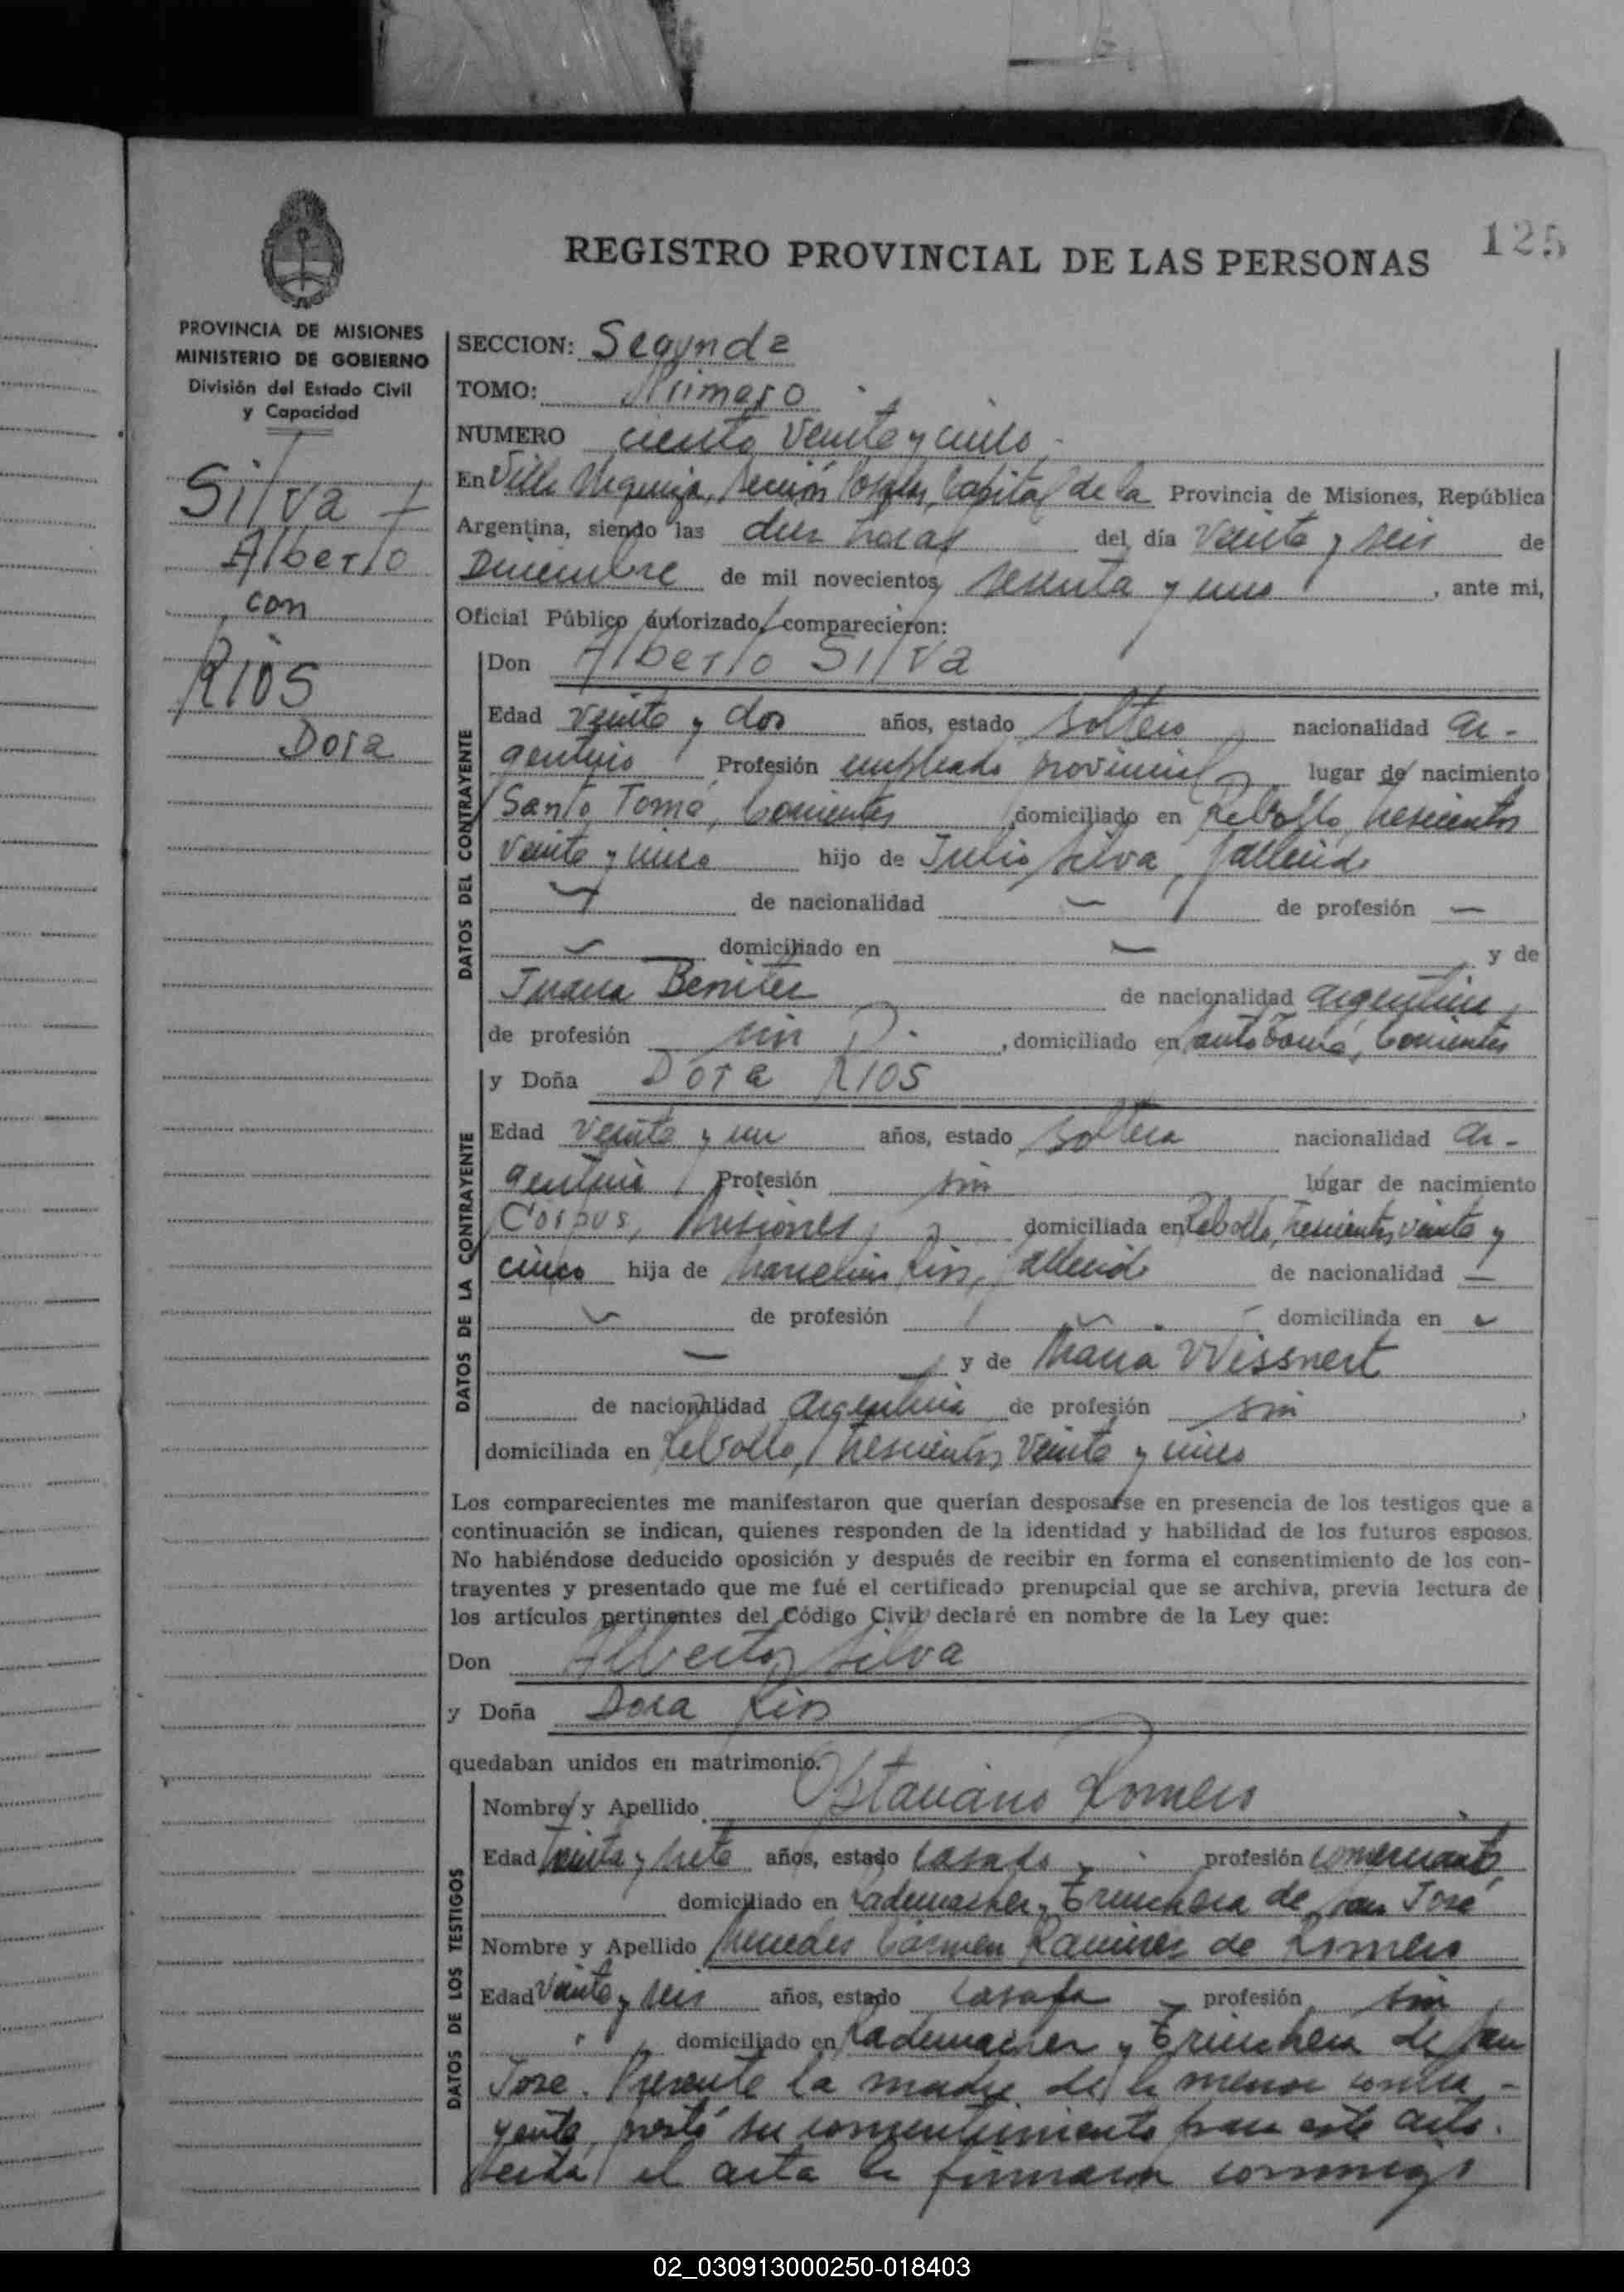 125
REGISTRO PROVINCIAL DE LAS PERSONAS
PROVINCIA DE MISIONES
MINISTERIO DE GOBIERNO
División del Estado Civil
y Capacidad
Silva
Alberto
con
RIOS
Dora
SECCION: Segunda
TOMO: Primero
NUMERO ciento veinte y cinco
En Villa Urquiza, Sección Capital de la Provincia de Misiones, República
Argentina, siendo las diez horas del día veinte y seis de
Diciembre de mil novecientos sesenta y uno, ante mi,
Oficial Público autorizado, comparecieron:
DATOS DEL CONTRAYENTE
Don Alberto Silva
Edad veinte y dos años, estado soltero nacionalidad ar-
gentino Profesión empleado provincial lugar de nacimiento
Santo Tomé, Corrientes domiciliado en Rebollo, trescientos
veinte y cinco hijo de Julio Silva, fallecido
de nacionalidad — de profesión —
domiciliado en — y de
Juana Benitez de nacionalidad argentina,
de profesión sin, domiciliado en Santo Tomé, Corrientes
DATOS DE LA CONTRAYENTE
y Doña Dora RIOS
Edad veinte y un años, estado soltera nacionalidad ar-
gentina Profesión sin lugar de nacimiento
Corpus, Misiones, domiciliada en Rebollo, trescientos veinte y
cinco hija de Marcelino Rios, fallecido de nacionalidad —
de profesión domiciliada en
— y de Maria Wissnert
de nacionalidad argentina de profesión sin,
domiciliada en Rebollo, trescientos veinte y cinco
Los comparecientes me manifestaron que querían desposarse en presencia de los testigos que a
continuación se indican, quienes responden de la identidad y habilidad de los futuros esposos.
No habiéndose deducido oposición y después de recibir en forma el consentimiento de los con-
trayentes y presentado que me fué el certificado prenupcial que se archiva, previa lectura de
los artículos pertinentes del Código Civil declaré en nombre de la Ley que:
Don Alberto Silva
y Doña Dora Rios
quedaban unidos en matrimonio.
DATOS DE LOS TESTIGOS
Nombre y Apellido Romero
Edad y siete años, estado casado profesión comerciante,
domiciliado en Rademacher y Trinchera de San José
Nombre y Apellido Mercedes Carmen Ramirez de Romero
Edad veinte y seis años, estado casada profesión sin
domiciliado en Rademacher y Trinchera de San
José. Presente la madre de la menor contra-
yente, prestó su consentimiento para este acto.
Leída el acta la firmaron conmigo
02_030913000250-018403